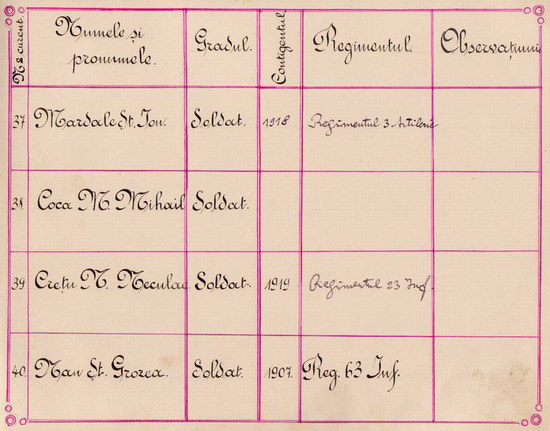 № curent.
Numele și
pronumele.
Gradul.
Contigentul.
Regimentul.
Observațiuni
37 Mardale St. Ion. Soldat. 1918 Regimentul 3 Artilerie
38. Coca M. Mihail Soldat.
39 Crețu N. Neculae Soldat. 1919 Regimentul 23 Inf.
40. Man St. Grozea. Soldat. 1907. Reg. 63 Inf.